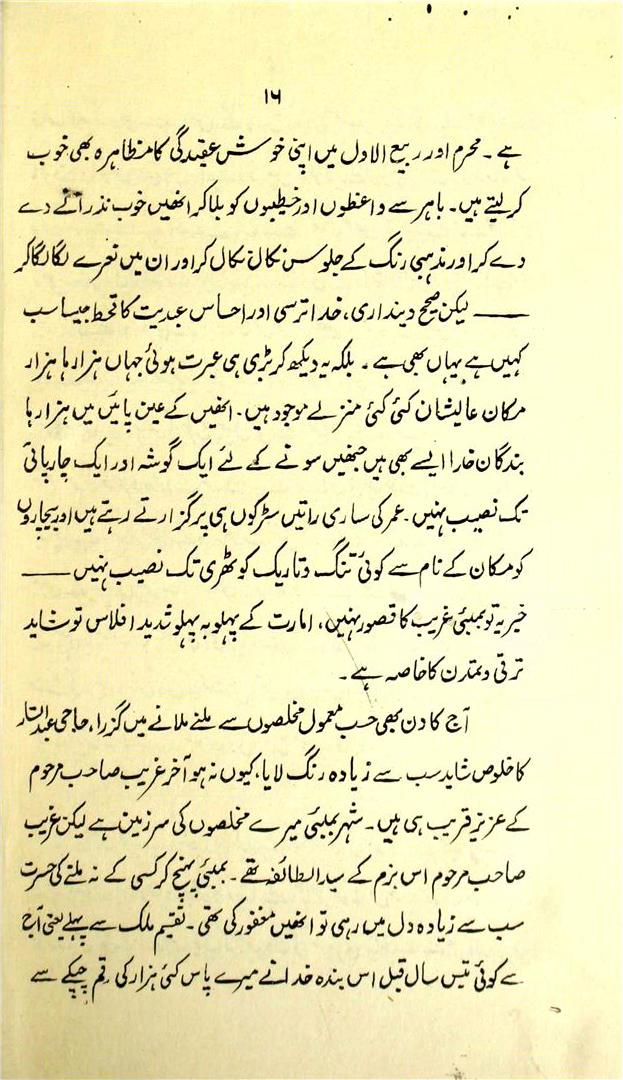 ۱۶
ہے ۔ محرم اور ربیع الاول میں اپنی خوش عقیدگی کا مظاہرہ بھی خوب
کر لیتے ہیں۔ باہر سے واعظوں اور خطیبوں کو بلا کر انھیں خوب نذرانے دے
دے کر اور مذہبی رنگ کے جلوس نکال نکال کر اور ان میں نعرے لگا لگا کر
——— لیکن صحیح دینداری، خدا ترسی اور احساس عبدیت کا قحط جیسا سب
کہیں ہے یہاں بھی ہے ۔ بلکہ یہ دیکھ کر بڑی ہی عبرت ہوئی جہاں ہزارہا ہزار
مکان عالیشان کئی کئی منزلے موجود ہیں۔ انھیں کے عین پائیں میں ہزارہا
بندگان خدا ایسے بھی ہیں جنھیں سونے کے لئے ایک گوشہ اور ایک چارپائی
تک نصیب نہیں۔ عمر کی ساری راتیں سڑکوں ہی پر گزارتے رہتے ہیں اور بیچاروں
کو مکان کے نام سے کوئی تنگ و تاریک کوٹھری تک نصیب نہیں ———
خیر یہ تو بمبئی غریب کا قصور نہیں، امارت کے پہلو بہ پہلو شدید افلاس تو شاید
ترقی و تمدن کا خاصہ ہے ۔
آج کا دن بھی حسب معمول مخلصوں سے ملنے ملانے میں گزرا، حاجی عبدالستار
کا خلوص شاید سب سے زیادہ رنگ لایا، کیوں نہ ہو آخر غریب صاحب مرحوم
کے عزیز قریب ہی ہیں۔ شہر بمبئی میرے مخلصوں کی سرزمین ہے لیکن غریب
صاحب مرحوم اس بزم کے سید الطائفہ تھے ۔ بمبئی پہنچ کر کسی کے نہ ملنے کی حسرت
سب سے زیادہ دل میں رہی تو انھیں مغفور کی تھی ۔ تقسیم ملک سے پہلے یعنی آج
سے کوئی تیس سال قبل اس بندہ خدا نے میرے پاس کئی ہزار کی رقم چپکے سے